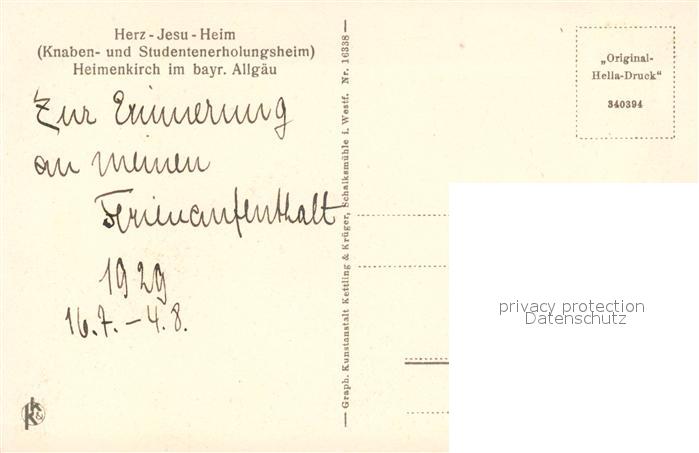 Herz-Jesu-Heim
(Knaben- und Studentenerholungsheim)
Heimenkirch im bayr. Allgäu
Zur Erinnerung
an meinen
Ferienaufenthalt
1929
16.7. – 4.8.
K & K
— Graph. Kunstanstalt Kettling & Krüger, Schalksmühle i. Westf. Nr. 16338 —
„Original-
Hella-Druck“
340394
privacy protection
Datenschutz